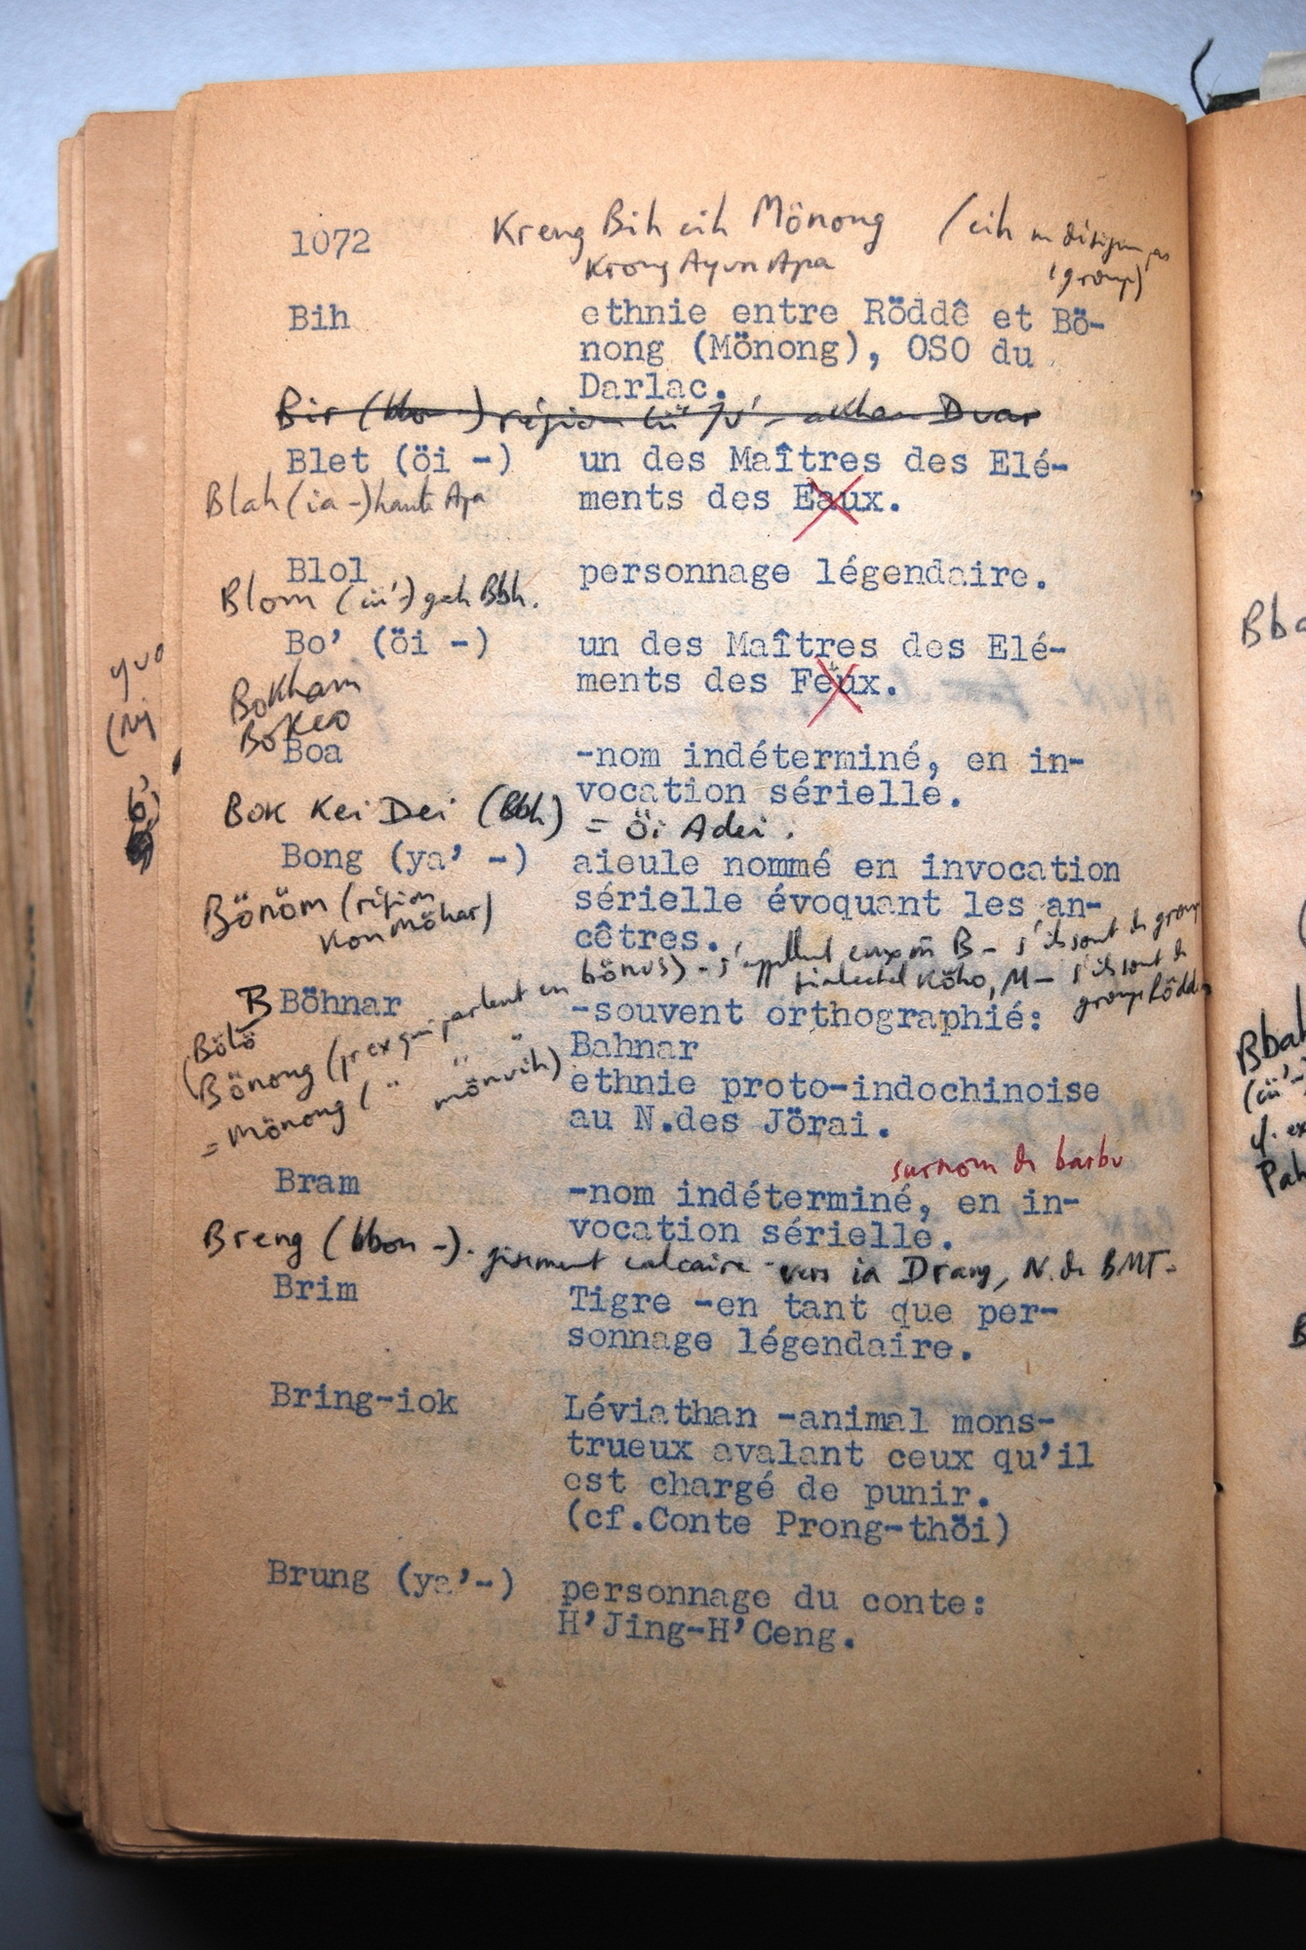 1072
Kreng Bih cih Mönong (cih ne désigne pas
Krong Ayun Apa
1 group)
Bih ethnie entre Röddê et Bö-
nong (Mönong), OSO du
Darlac.
Bir (bbon -) région
Blet (öi -) un des Maîtres des Elé-
Blah (ia -) haute Apa ments des Eaux.
Blol personnage légendaire.
Blom (cü'-) Bbh.
Bo' (öi -) un des Maîtres des Elé-
ments des Feux.
Bokham
Bokeo
Boa -nom indéterminé, en in-
vocation sérielle.
Bok Kei Dei (Bbh) = öi Adei.
Bong (ya' -) aieule nommé en invocation
sérielle évoquant les an-
cêtres.
Bönöm (région
Kon Möhar)
B Böhnar -souvent orthographié:
Bahnar
ethnie proto-indochinoise
au N.des Jörai.
Bölö
(Bönong (pr ex qui parlent un bönus) - s'appellent eux m̄ B - s's sont de group
dialectal Köho, M - s'ils sont de
group Röddê
= Mönong ( " " " mönuih)
surnom de barbu
Bram -nom indéterminé, en in-
vocation sérielle.
Breng (bbon -). gisement calcaire - vers ia Drang, N. de BMT -
Brim Tigre -en tant que per-
sonnage légendaire.
Bring-iok Léviathan -animal mons-
trueux avalant ceux qu'il
est chargé de punir.
(cf.Conte Prong-thöi)
Brung (ya'-) personnage du conte:
H'Jing-H'Ceng.
Bba
Bbah
(cü'-
cf. ex
Pah